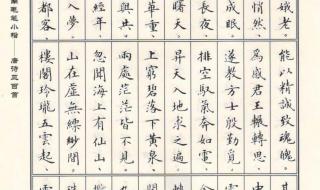 娥老。
悄然
成眠
長夜
曙天
華重
與共
經年
入夢
都客
能以精誠致魂魄。
為感君王輾轉思
遂教方士殷勤覓
排空馭氣奔如電
昇天入地求之遍
上窮碧落下黃泉
兩處茫茫皆不見
忽聞海上有仙山
山在虛無縹緲間
樓閣玲瓏五雲起
毛笔小楷
唐诗三百首